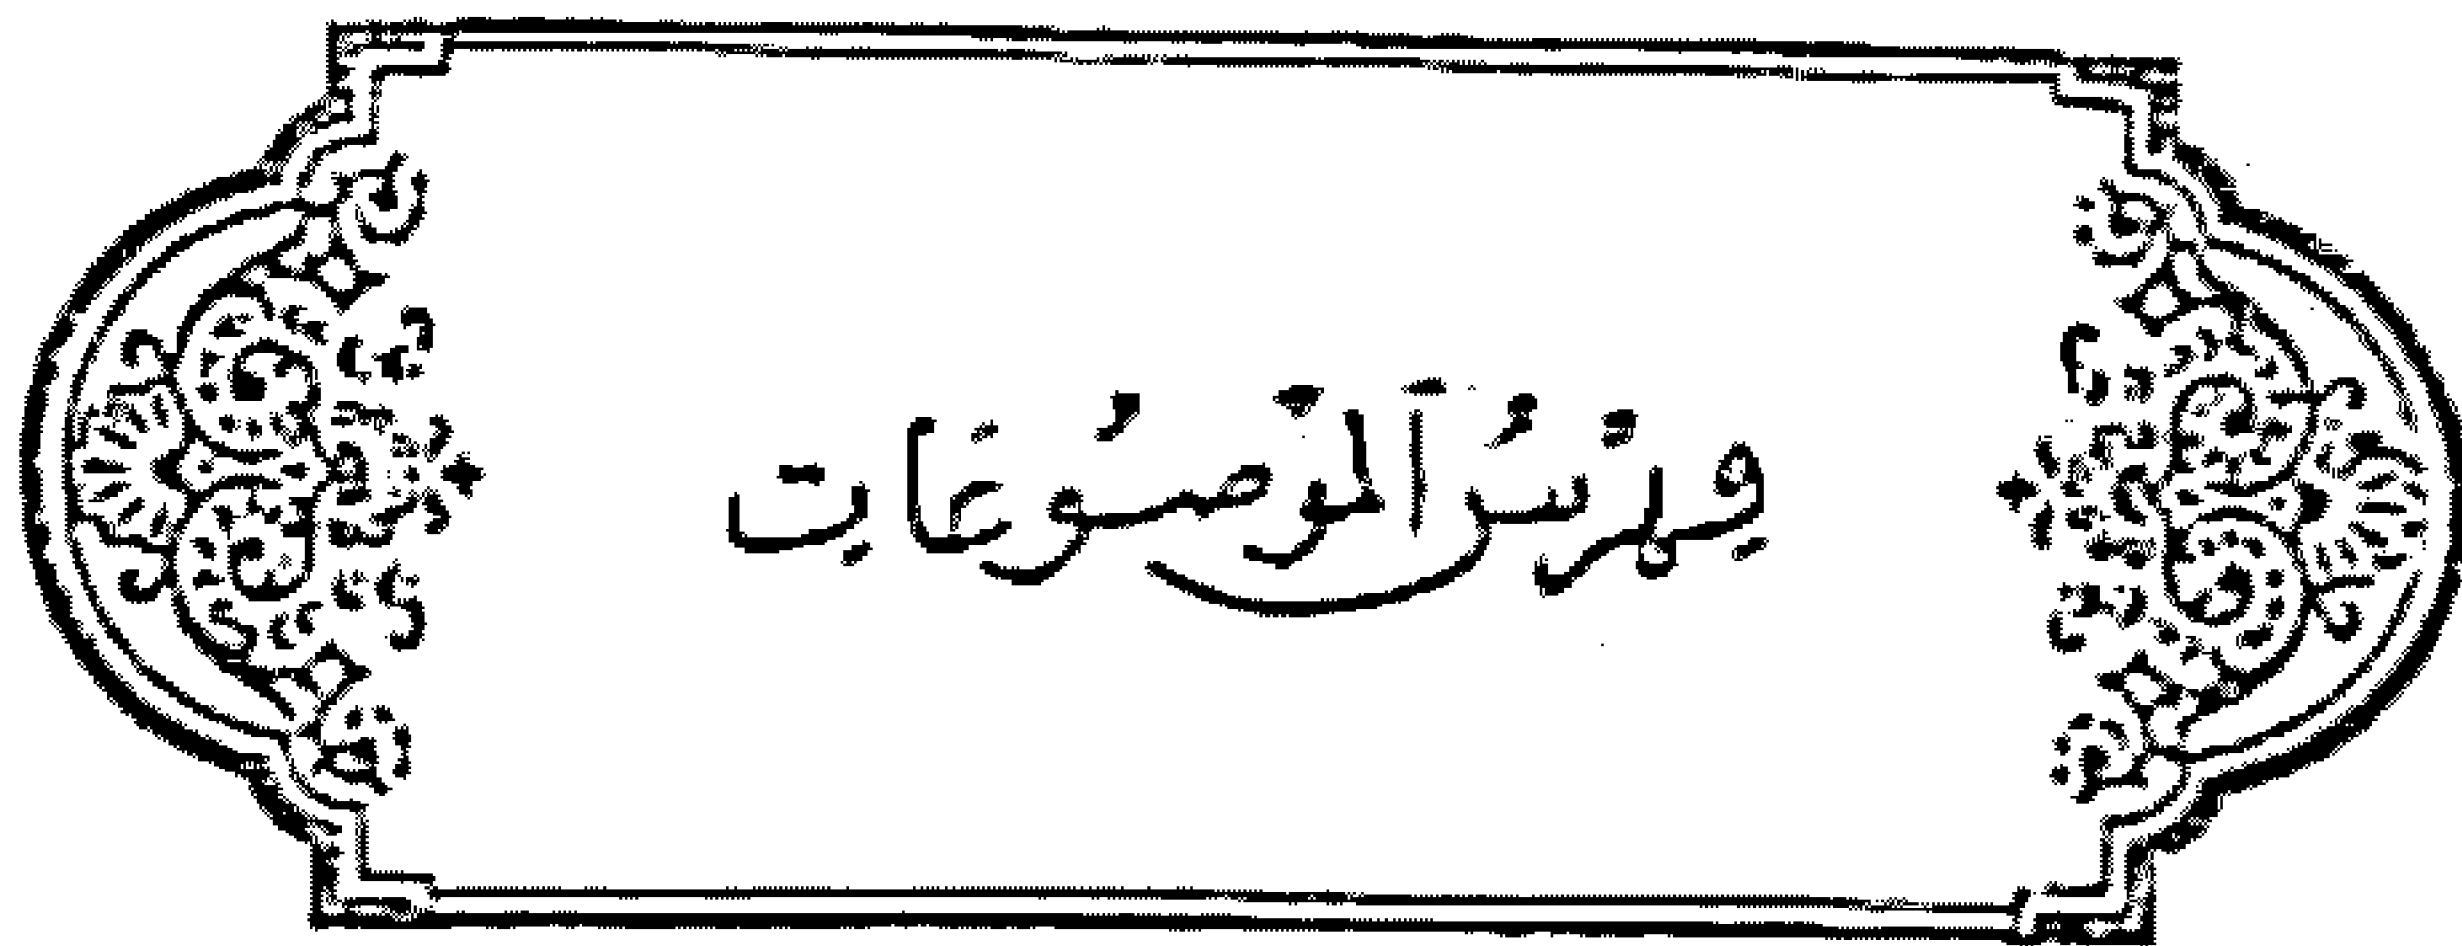 فِهْرْسُ ٱلْمَوْضُوعَات